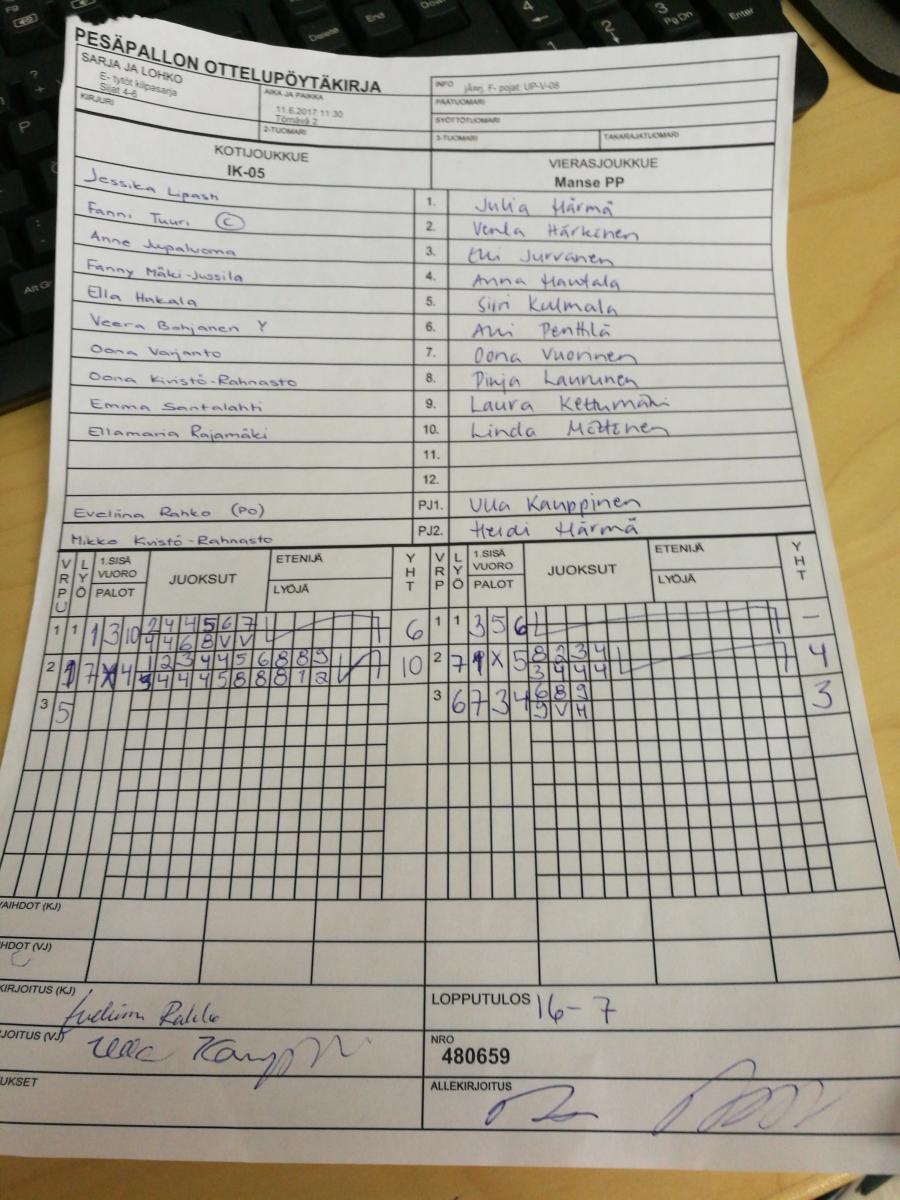 PESÄPALLON OTTELUPÖYTÄKIRJA
SARJA JA LOHKO
E- tytöt kilpasarja
Sijat 4-6
AIKA JA PAIKKA
11.6.2017 11:30
Törnävä 2
INFO jÄrrj. F- pojat. UP-V-08
PÄÄTUOMARI
SYÖTTÖTUOMARI
KIRJURI
2-TUOMARI
3-TUOMARI
TAKARAJATUOMARI
KOTIJOUKKUE
IK-05
VIERASJOUKKUE
Manse PP
Jessika Lipasti 1. Julia Härmä
Fanni Tuuri C 2. Venla Härkinen
Anne Jupaluoma 3. Elli Jurvanen
Fanny Mäki-Jussila 4. Anna Hautala
Ella Hakala 5. Siiri Kulmala
Veera Bohjanen Y 6. Alli Penttlä
Oona Varjanto 7. Oona Vuorinen
Oona Kivistö-Rahnasto 8. Pinja Laununen
Emma Santalahti 9. Laura Kettumäki
Ellamaria Rajamäki 10. Linda
11.
12.
Eveliina Rahko (PO) PJ1. Ulla Kauppinen
Mikko Kvistö-Rahnasto PJ2. Heidi Härmä
VRPU LYÖ 1.SISÄ VUORO PALOT JUOKSUT ETENIJÄ LYÖJÄ YHT VRP LYÖ 1.SISÄ VUORO PALOT JUOKSUT ETENIJÄ LYÖJÄ YHT
1 1 1 3 10 2 4 4 5 6 7 6 1 1 3 5 6 -
4 4 6 8 V V
2 7 X 4 1 2 3 4 4 5 6 8 8 9 10 2 7 1 X 5 8 2 3 4 4
4 4 4 5 8 8 8 1 2 3 4 4 4
3 5 3 6 7 3 4 6 8 9 3
9 V H
VAIHDOT (KJ)
HDOT (VJ)
KIRJOITUS (KJ)
LOPPUTULOS 16-7
JOITUS (VJ) Ulla
NRO
480659
UKSET
ALLEKIRJOITUS
Fn
Home
End
PgDn
Delete
Down
Enter
Alt Gr